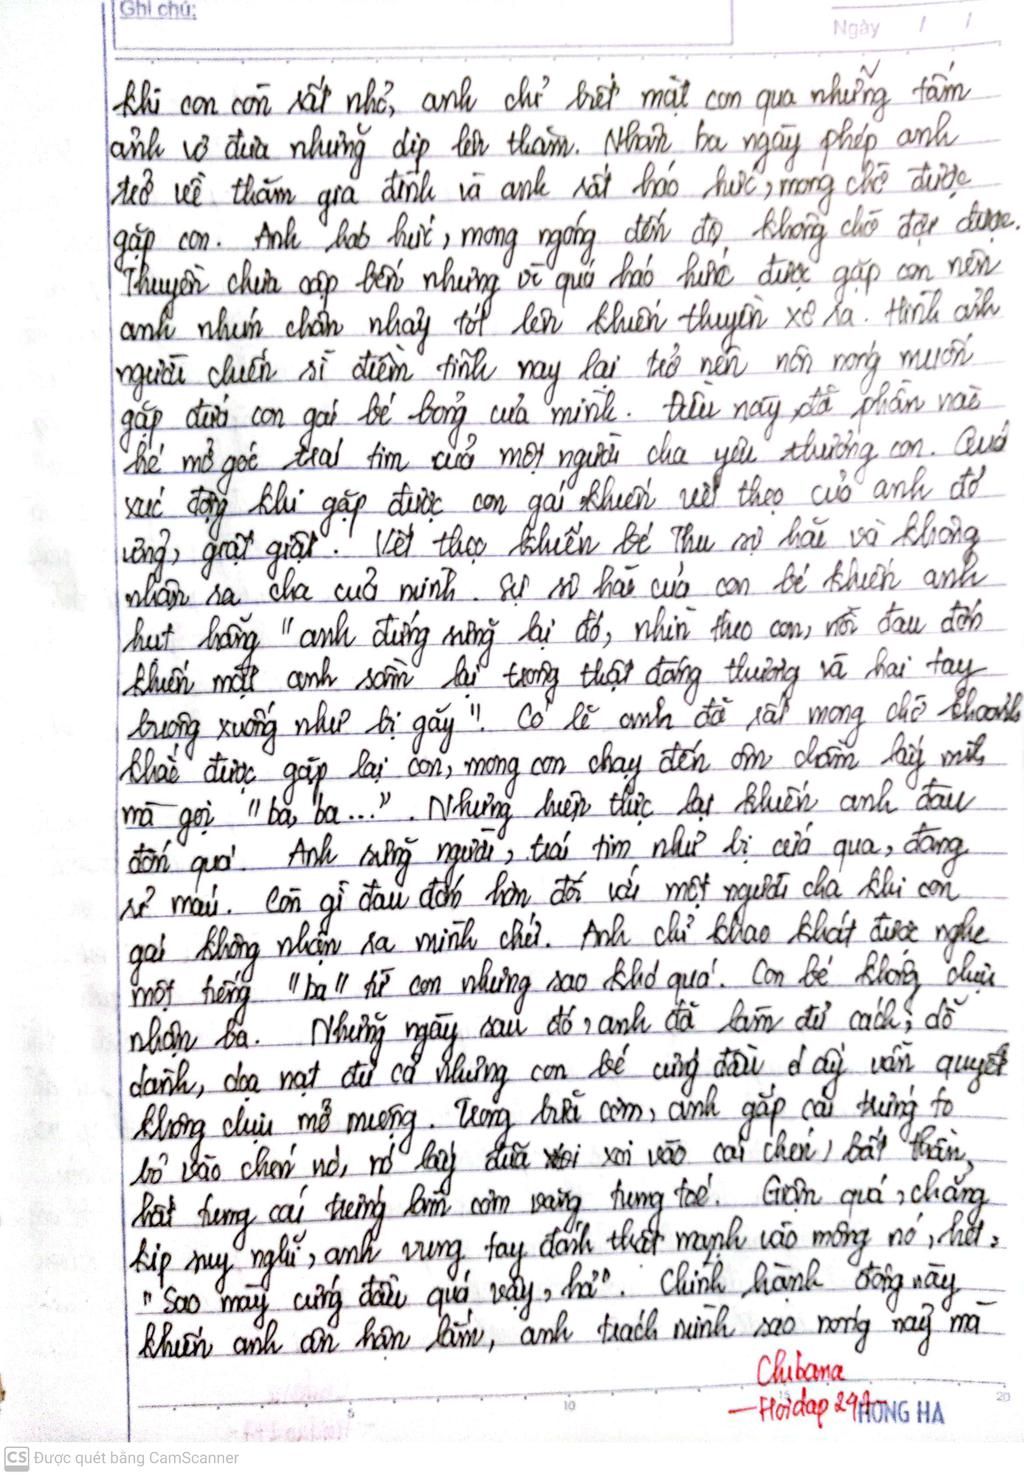 Ghi chú:
Ngày / /
khi con còn rất nhỏ, anh chỉ biết mặt con qua những tấm
ảnh vợ đưa những dịp lên thăm. Nhân ba ngày phép anh
trở về thăm gia đình và anh rất háo hức, mong chờ được
gặp con. Anh háo hức, mong ngóng đến độ không chờ đợi được.
Thuyền chưa cập bến nhưng vì quá háo hức được gặp con nên
anh nhún chân nhảy tót lên khiến thuyền xô ra. Hình ảnh
người chiến sĩ điềm tĩnh nay lại trở nên nôn nóng muốn
gặp đứa con gái bé bỏng của mình. Điều này đã phần nào
hé mở góc trái tim của một người cha yêu thương con. Quá
xúc động khi gặp được con gái khiến vết thẹo của anh đỏ
ửng, giật giật. Vết thẹo khiến bé Thu sợ hãi và không
nhận ra cha của mình. Sự sợ hãi của con bé khiến anh
hụt hẫng "anh đứng sững lại đó, nhìn theo con, nỗi đau đớn
khiến mặt anh sầm lại trông thật đáng thương và hai tay
buông xuống như bị gãy". Có lẽ anh đã rất mong chờ khoảnh
khắc được gặp lại con, mong con chạy đến ôm chầm lấy mình
mà gọi "ba, ba...". Nhưng hiện thực lại khiến anh đau
đớn quá. Anh sững người, trái tim như bị cứa qua, đang
rỉ máu. Còn gì đau đớn hơn đối với một người cha khi con
gái không nhận ra mình chứ. Anh chỉ khao khát được nghe
một tiếng "ba" từ con nhưng sao khó quá. Con bé không chịu
nhận ba. Những ngày sau đó, anh đã làm đủ cách, dỗ
dành, dọa nạt đủ cả nhưng con bé cứng đầu ấy vẫn quyết
không chịu mở miệng. Trong bữa cơm, anh gắp cái trứng to
bỏ vào chén nó, nó lấy đũa xoi vào cái chén, bất thần,
hất tung cái trứng làm cơm văng tung toé. Giận quá, chẳng
kịp suy nghĩ, anh vung tay đánh thật mạnh vào mông nó, hét:
"Sao mày cứng đầu quá vậy, hả". Chính hành động này
khiến anh ân hận lắm, anh trách mình sao nóng nảy mà
Chibana
—Hoidap 247
5 10 15 20
HONG HA
CS Được quét bằng CamScanner